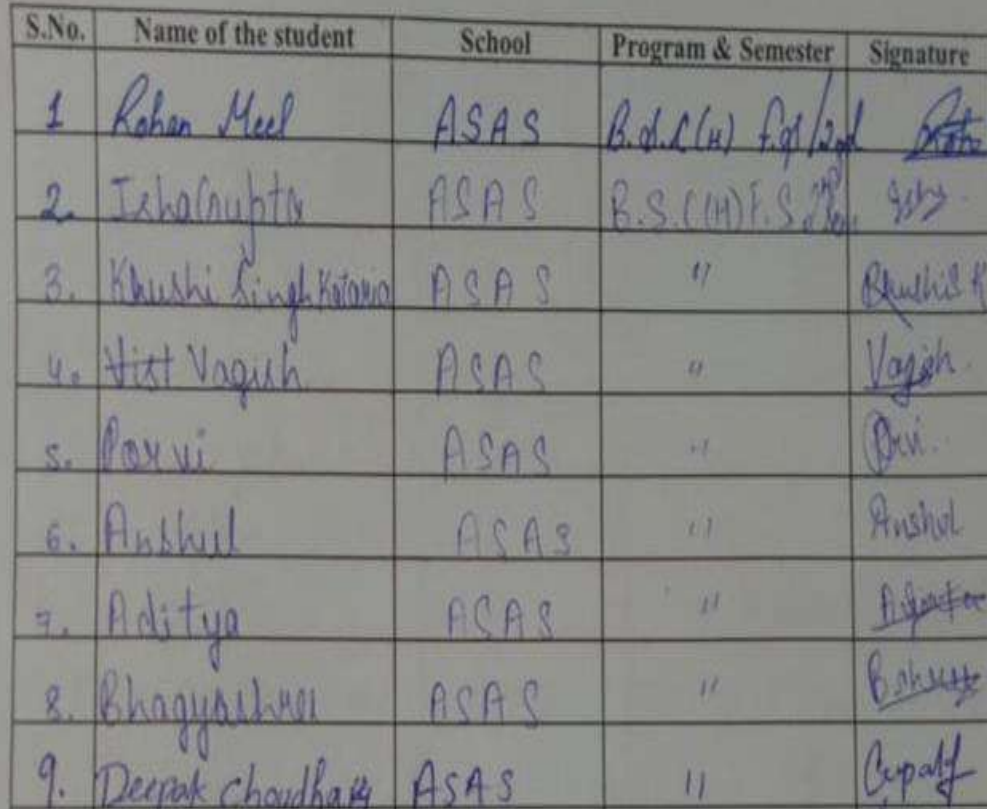 S.No. Name of the student School Program & Semester Signature
1 Rohan Meel ASAS B.S.C(H) F.S/2nd
2. Isha Gupta ASAS B.S.C(H) F.S.
3. Khushi Singh Kataria ASAS " Khushi S K
4. Vagish ASAS " Vagish.
5. Parvi ASAS "
6. Anshul ASAS " Anshul
7. Aditya ASAS "
8. Bhagyashree ASAS "
9. Deepak Choudhary ASAS "